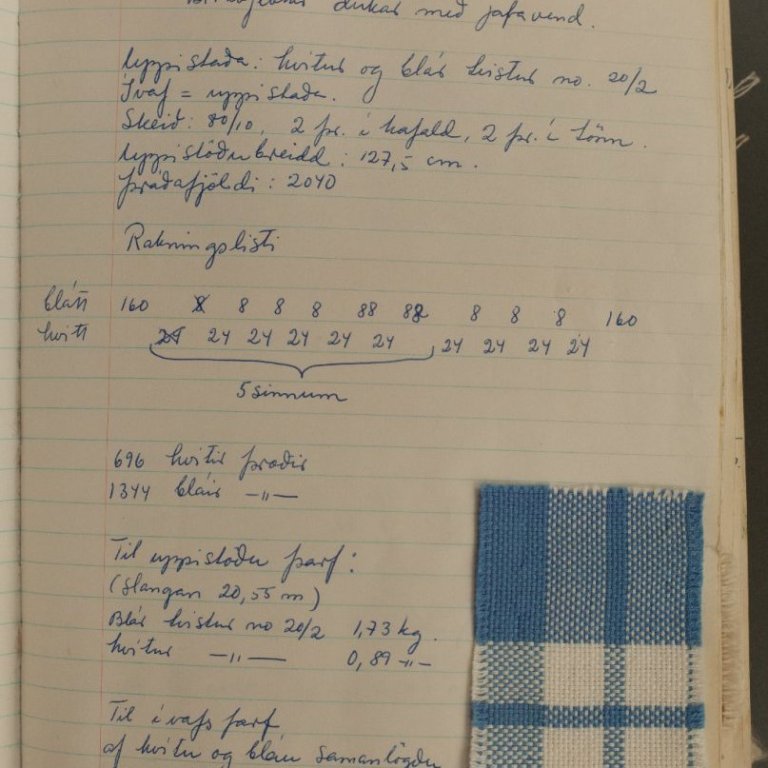 dúkar með jafavend.
Uppistaða: hvítur og blár tvistur no. 20/2
Ívaf = uppistaða.
Skeið: 80/10, 2 þr. í hafald, 2 þr. í tönn.
Uppistöðubreidd: 127,5 cm.
Þráðafjöldi: 2040
Rakningslisti
blátt 160 8 8 8 8 88 88 8 8 8 160
hvítt 24 24 24 24 24 24 24 24 24 24
5 sinnum
696 hvítir þræðir
1344 bláir —"—
Til uppistöðu þarf:
(slangan 20,55 m)
Blár tvistur no 20/2 1,73 kg.
hvítur —"— 0,89 -"-
Til ívafs þarf
af hvítu og bláu samanlögðu